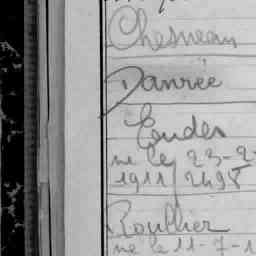 Chesneau
Danrée
Eudes
né le 23-2
1911 2498
Roullier
né le 11-7-1